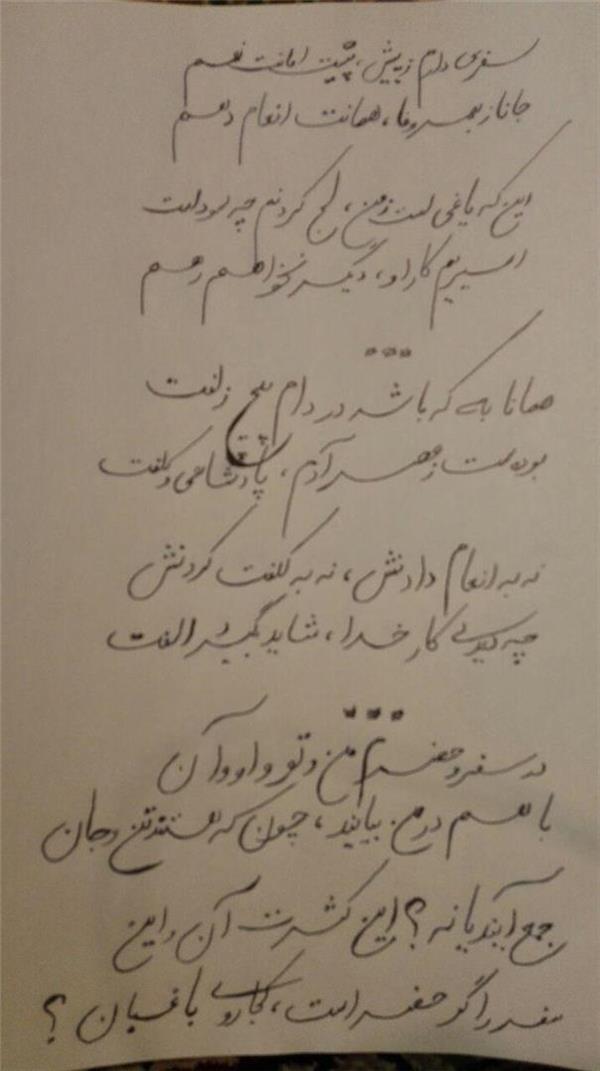 سفری دارم ز پیش، پیشت امانت نهم
جانا ز بهر وفا، همانت انعام دهم
این که یاغی است ز من، لج کردنم چه سود است
اسیریم کار او، دیگر نخواهم رهم
همانا به که باشد در دام پیچ زلفت
بودست ز بهر آدم، پادشاهی و کلفت
نه به انعام دادنش، نه به کلفت کردنش
چه گویی کار خدا، شاید بگیرد الفت
در سفر و حضرم من و تو و او و آن
با هم در من بیایند، چون که هستند تن و جان
جمع آیند یا نه؟ این کثرت آن و این
سفر را گر حضر است، کجا روی باغبان؟